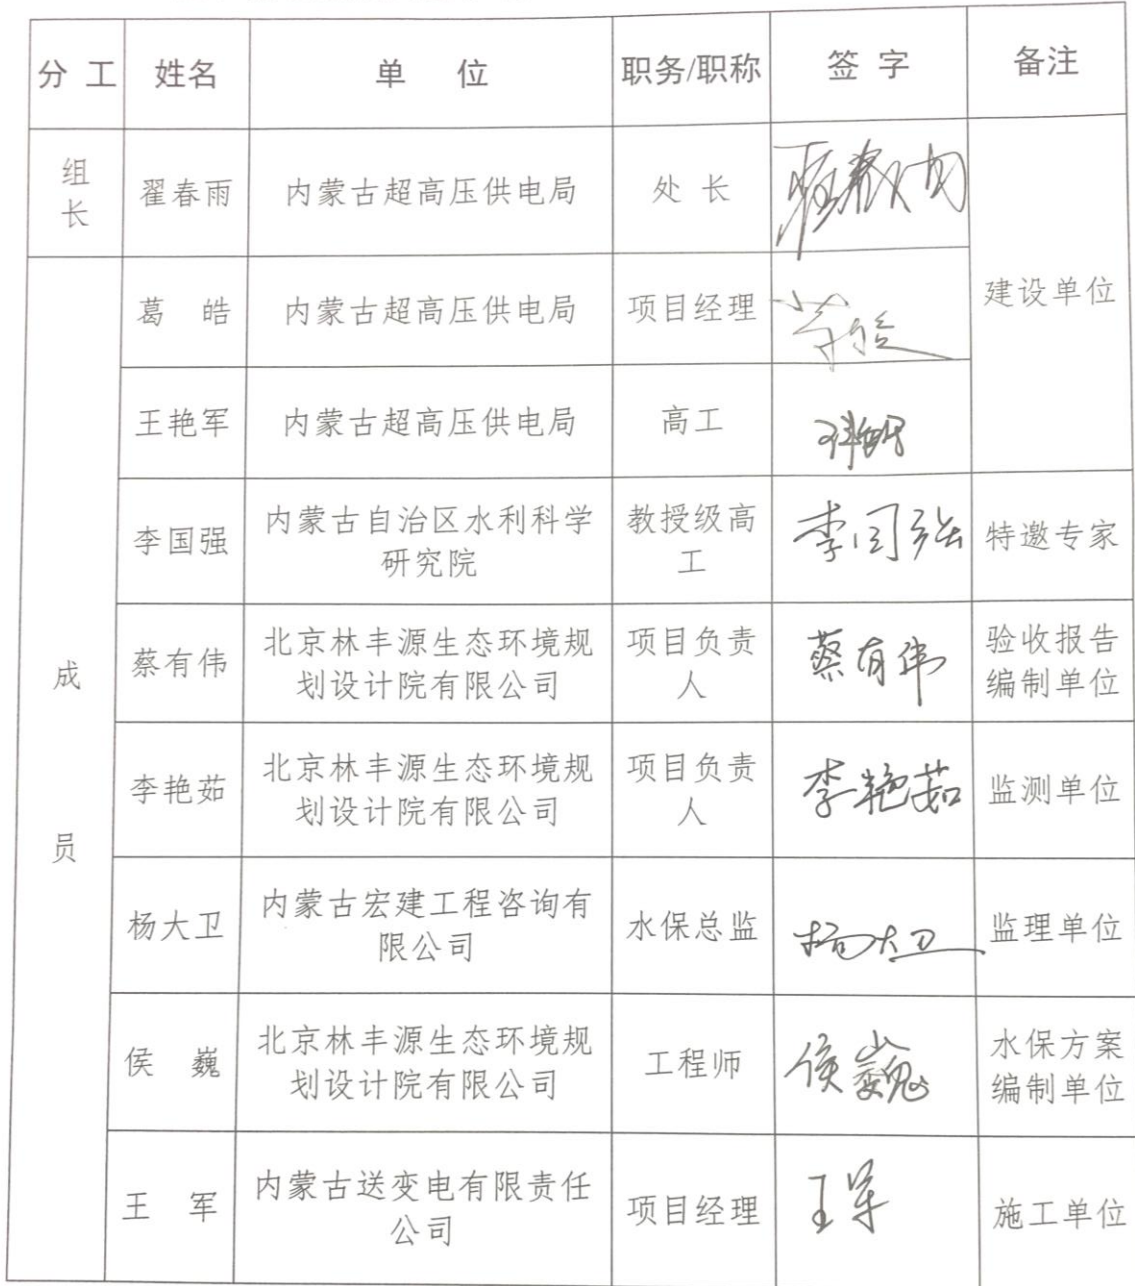 分 工 姓名 单 位 职务/职称 签 字 备注
组
长
翟春雨 内蒙古超高压供电局 处 长 翟春雨
建设单位
葛 皓 内蒙古超高压供电局 项目经理
王艳军 内蒙古超高压供电局 高工 王艳军
成
员
李国强 内蒙古自治区水利科学
研究院 教授级高
工 李国强 特邀专家
蔡有伟 北京林丰源生态环境规
划设计院有限公司 项目负责
人 蔡有伟 验收报告
编制单位
李艳茹 北京林丰源生态环境规
划设计院有限公司 项目负责
人 李艳茹 监测单位
杨大卫 内蒙古宏建工程咨询有
限公司 水保总监 杨大卫 监理单位
侯 巍 北京林丰源生态环境规
划设计院有限公司 工程师 侯巍 水保方案
编制单位
王 军 内蒙古送变电有限责任
公司 项目经理 王军 施工单位